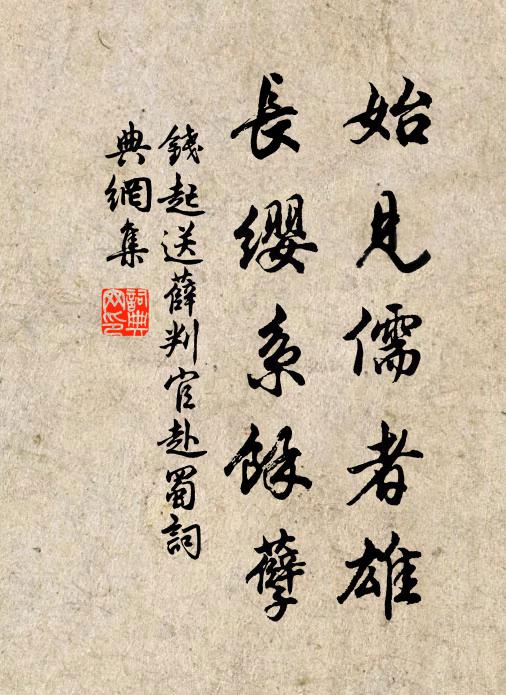 始見儒者雄
長纓系餘孽
錢起送薛判官赴蜀詞
典網集
詞典網印